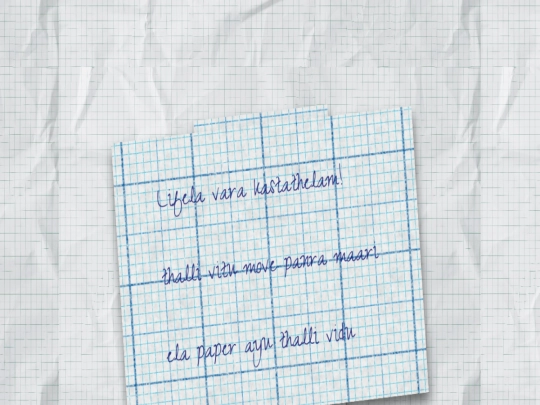 Lifela vara kastathelam!
thalli vitu move panra maari
ela paper ayu thalli vidu